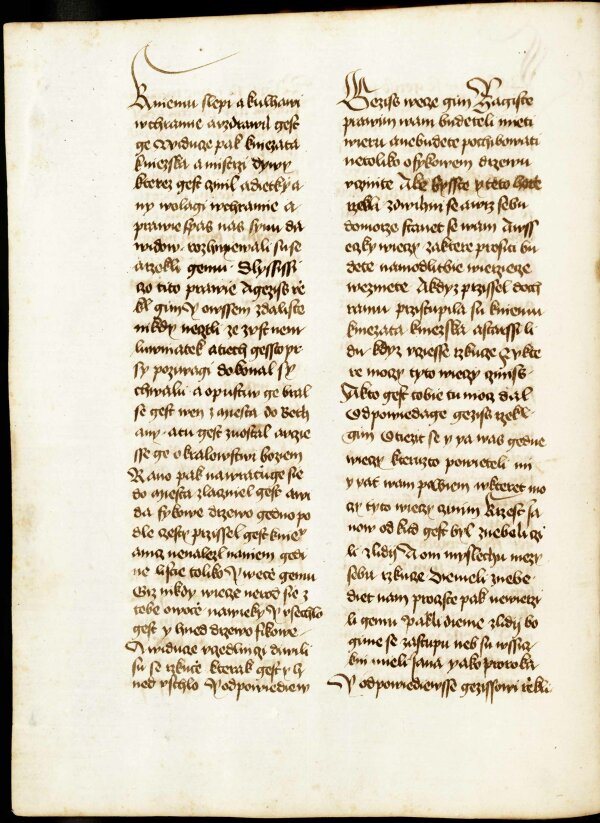 K niemu slepi a kulhawi
w chramie a vzdrawil gest
ge Widuce pak kniezata
kniezska a mistrzi dywy
kterez gest czinil a dietky a
ny wolagi w chramie a
prawie spas nas synu da
widow rozhniewali su se
a rzekli gemu Slyssiss
czo tito prawie A gezis rze
kl gim Y owssem zdaliste
nikdy necztli ze z vst nem
luwniatek a tiech gessto pr
sy pozywagi dokonal sy
chwalu a opustiw ge bral
se gest wen z miesta do Beth
any a tu gest zuostal a vczie
sse ge o kralowstwi boziem
Rano pak nawraczuge sie
do miesta zlacniel gest a wi
da fykowe drzewo gedno po
dle czesty przissel gest k nie
amz nenalezl na niem gedi
ne listie toliko Y wecze gemu
Giz nikdy wiecze nerod se z
tebe owocze na wieky Y vschlo
gest y hned drzewo fikowe
A widuce vczedlnici diwili
su se rzkucze kterak gest y h
ned vschlo Y odpowiediew
Gezis wecze gim Zagiste
prawim wam budeteli mieti
wieru a nebudete pochybowati
netoliko o fykowem drzewu
vczinite Ale byste y teto horze
rzekli zdwihni se a wrz sebu
do morze stanet se wam A wss
eczky wieczy za ktere prositi bu
dete na modlitbie wierziece
wezmete A kdyz przissel do ch
ramu przistupila su k niemu
kniezata kniezska a starssi li
du kdyz vcziesse rzkuce Z ktere
moczy tyto wieczy czinis
A kto gest tobie tu mocz dal
Odpowiedage gezis rzekl
gim Otiezi se y ya was gedne
wieczy kteruzto powieteli mi
y yat wam powiem w ktere mo
czy tyto wieczy czinim Krzest Ja
now od kud gest byl z nebe li czi
li z lidi A oni myslechu mezy
sebu rzkuce Diemeli z nebe
diet nam procz ste pak newierzi
li gemu Pakli dieme z lidi bo
gime se zastupu neb su wssic
kni mieli Jana yako proroka
Y odpowiediewsse gezissowi rzekli